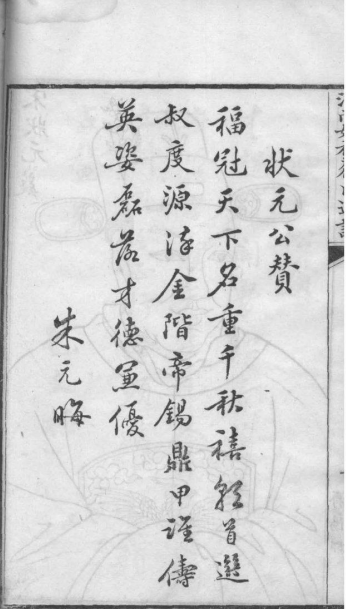 狀元公贊
福冠天下名重千秋禧首選
叔度源金階帝錫鼎甲誰儔
英姿磊落才德兼優
朱元晦